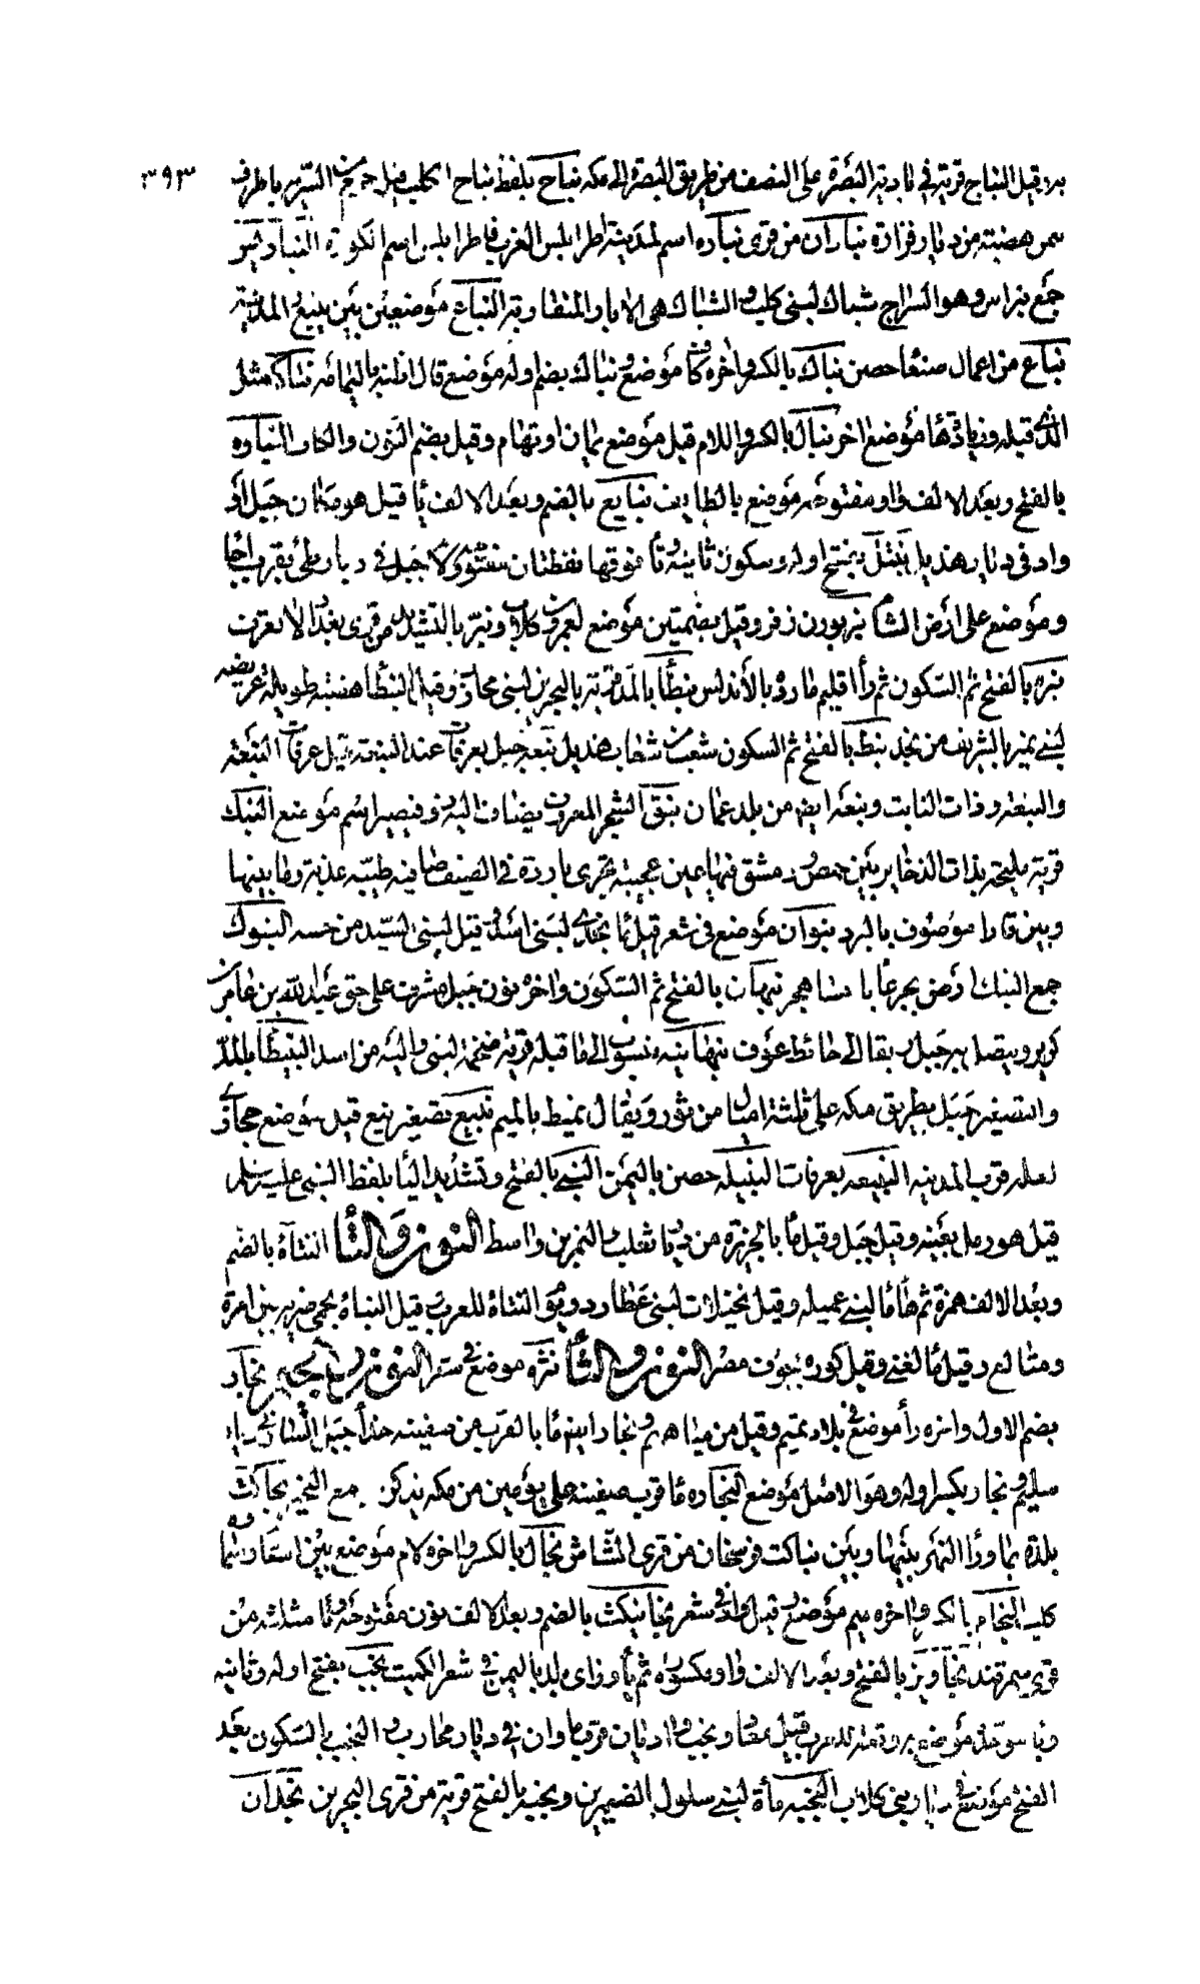 ٣٩٣
قيل النباج قرية في بادية البصرة على النصف من طريق البصرة الى مكة نباح بلفظ نباح الكلب قيل
هضبة من ديار فزارة نباران من قرى نباره اسم لمدينة اطرابلس الغرب اطرابلس اسم الكورة النبادس
جمع نبراس وهو السراج شباك لبني كليب والشباك هي الابار المتقاربة النباع موضعين بين ينبع المدينة
نباع من اعمال صنعا حصن نباك بالكسر واخره كاف موضع نباك بضم اوله موضع قال اظنه باليمامة نباكه مثل
الذي قبله وزيادة ها موضع اخر نبال بالكسر واللام قيل موضع يمان او تهام وقيل بضم النون والكاف النباوة
بالفتح وبعد الالف واو مفتوحة موضع بالطايف نبايع بالضم وبعد الالف يا قيل هو جبل او
واد في ديار هذيل نبتل بفتح اوله وسكون ثانيه وتا فوقها نقطتان جبل في ديار طي بقرب اجا
وموضع على ارض الشام نبر بوزن زفر وقيل بضمتين موضع لعمرو بن كلاب ونبر بالتشديد من قرى بغداد
نبره بالفتح ثم السكون ثم را اقليم بالاندلس نبطا بالمد قرية بالبحرين لبني محارب وقيل النبطا هضبة طويلة عريضة
لبني نمير بالشريف من نجد نبط بالفتح ثم السكون شعب من شعاب هذيل نبعه جبل بعرفات عند النبيعه عرفات النبعة
والنبعه وذات النابت ونبعه ايضا من بلد عمان نبق الشجر المعروف يضاف اليه ذو فيصير اسم موضع النبك
قرية مليحة بذات الذخاير بين حمص ودمشق فيها عين عجيبة تجري باردة في الصيف صافية طيبة عذبة وما بينها
وبين قارا موصوف بالبرد نبوان موضع في شعر قيل ما نجدي لبني اسد قيل لبني السيد من ضبه النبوك
جمع النبك ارض بجرعا با هجر نبهان بالفتح ثم السكون واخره نون جبل مشرف على حق عبدالله بن عامر بن
كريز ويتصل به جبل يقال حائط عوف نبهانيه نسوب الى ما قبله قرية ضخمة لبني والبة من اسد النبيطا بالمد
والتصغير جبل بطريق مكه على ثلثة اميال من توز ويقال نميط بالميم نبيع تصغير نبع قيل موضع حجازي
لعله قرب المدينه النبيعه بعرفات النبيله حصن باليمن النبي بالفتح وتشديد اليا بلفظ النبي عليه
قيل هو رمل بعينه وقيل جبل وقيل ما بالجزيرة من ديار تغلب والنمر بن قاسط النون والتا النتاءة بالضم
وبعد الالف همزة ثم ها ما لبني عميله وقيل نخيلات لبني عطارد ويوم النتاة للعرب قيل النتاة بحمى ضريه بين امرة
ومتالع وقيل ما لغني وقيل كوره بجوف مصر النون والثا نثره موضع في شعر النون والجيم نجاد
بضم الاول واخره را موضع في بلاد تميم وقيل من مياههم ونجار ايضا ما بالقرب من صفينه حذا جبل الستار في ديار
سليم ونجار بكسر اوله وهو الاصل موضع النجاره ما قرب صفينه على يومين من مكه يذكر مع النجير نجاكث
بلدة بما ورا النهر بينها وبين بناكت فرسخان من قرى الشاش نجال بالكسر واخره لام موضع بين
كليه النجام بالكسر واخره ميم موضع قيل واد في شعر نجانيكث بالضم وبعد الالف نون مفتوحة مثلثه من
قرى سمرقند نجاويز بالفتح وبعد الالف واو مكسوره ثم يا وزاي بلد باليمن في شعر الكميت نجب بفتح اوله وثانيه
وبا موحدة موضع به وقعه للعرب قيل ونجب واديان في ديار محارب والنجب بالسكون بعد
الفتح موضع في ديار بني كلاب النجبه مأة لبني سلول بالضميرين ونجبه بالفتح قرية من قرى البحرين نجدان